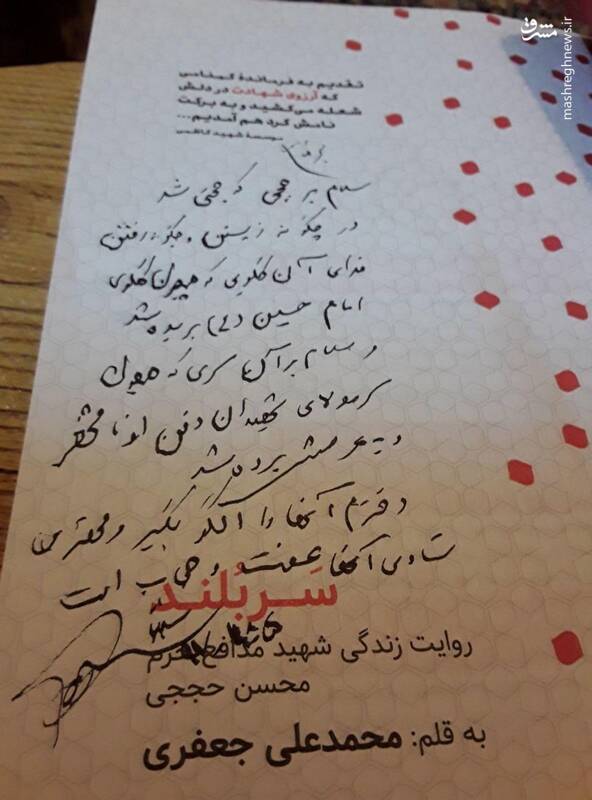 مشرق
mashreghnews.ir
تقدیم به فرماندهٔ گمنامی
که آرزوی شهادت در دلش
شعله می‌کشید و به برکت
نامش گرد هم آمدیم...
موسسهٔ شهید کاظمی
سلام بر حججی که حجتی شد
در چگونه زیستن و چگونه رفتن
فدای آن گلویی که همچون گلوی
امام حسین (ع) بریده شد
و سلام بر آن سری که همچون
سر مولای شهیدان دفن او نا
و به عرش برده شد
دخترم آنها را الگو بگیر و مهمترین
آنها عفت و حجاب است
سربلند
روایت زندگی شهید مدافع حرم
محسن حججی
به قلم: محمدعلی جعفری